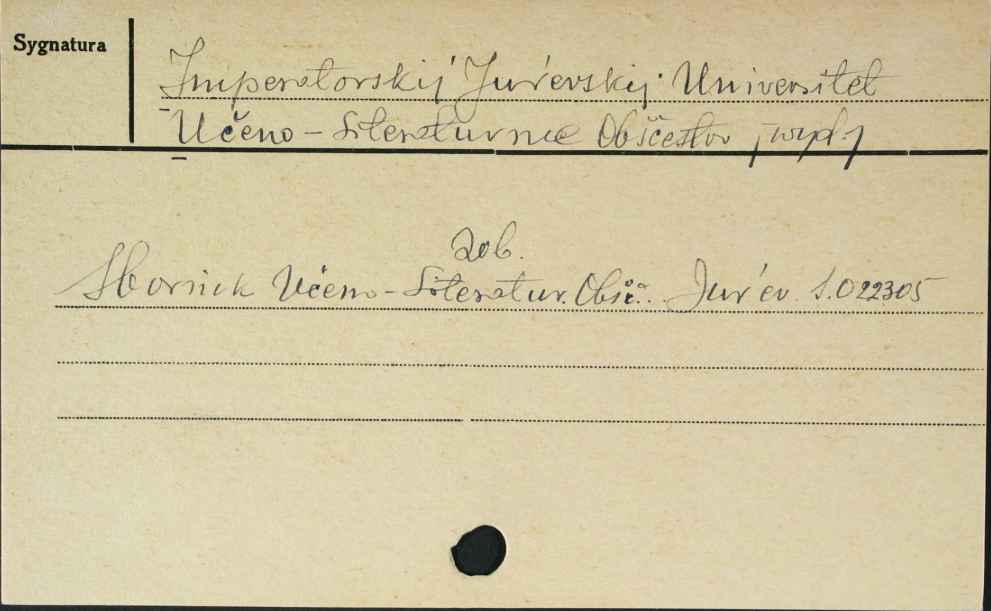 Sygnatura
Imperatorskij Jur'evskij Universitet
Učeno-Literaturnoe Obščestvo, [wyd.]
zob.
Sbornik Učeno-Literatur. Obšč. Jur'ev. S.022305